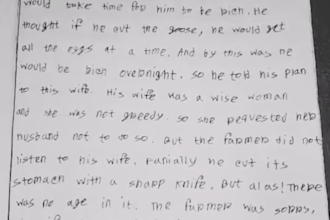 would take time for him to be rich. He
thought if he cut the goose, he would get
all the eggs at a time. And by this way he
would be rich overnight. So he told his plan
to his wife. His wife was a wise woman
and she was not greedy. So she requested her
husband not to do so. But the farmer did not
listen to his wife. Finially he cut its
stomach with a sharp knife. But alas! There
was no age in it. The farmer was sorry,